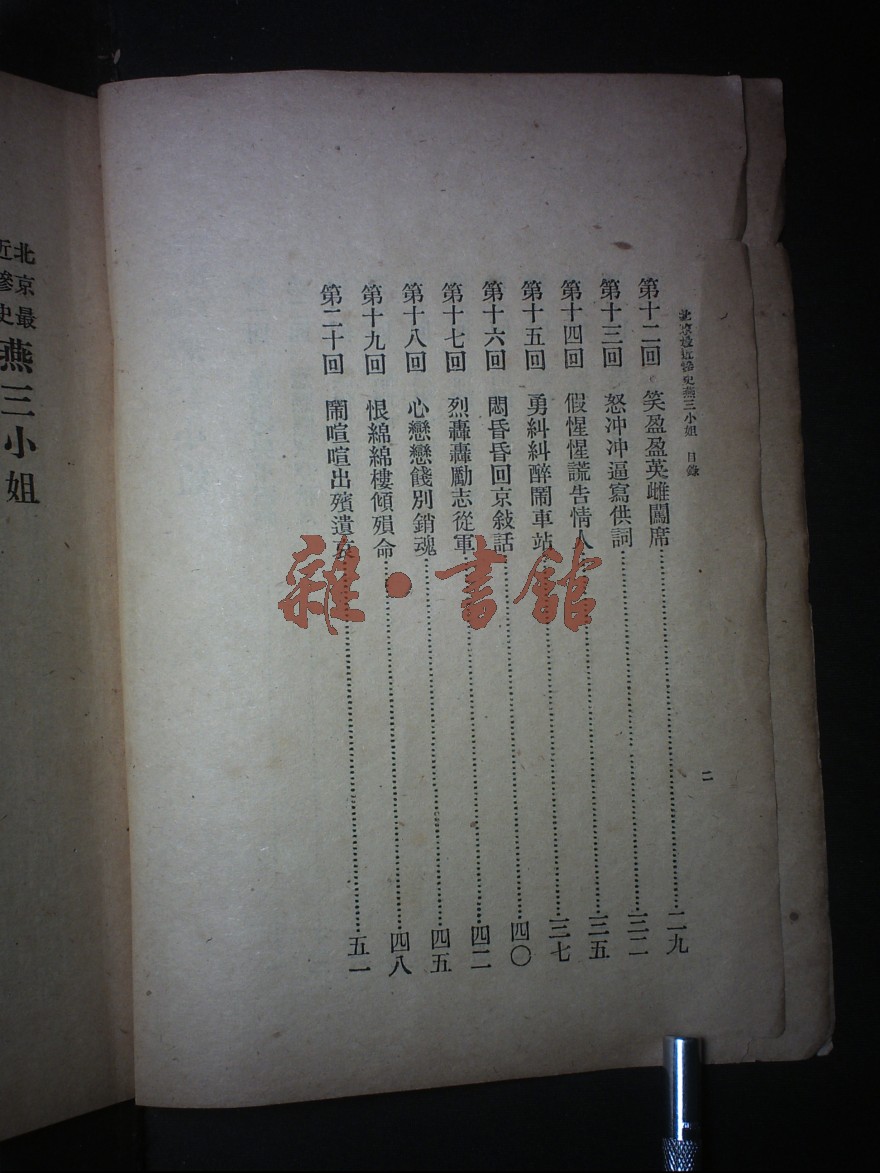 北京最近慘史燕三小姐　目錄
二
第十二回　笑盈盈英雌闖席……二九
第十三回　怒冲冲逼寫供詞……三二
第十四回　假惺惺謊告情人……三五
第十五回　勇糾糾醉鬧車站……三七
第十六回　悶昏昏回京敍話……四〇
第十七回　烈轟轟勵志從軍……四二
第十八回　心戀戀餞別銷魂……四五
第十九回　恨綿綿樓傾殞命……四八
第二十回　鬧喧喧出殯遺……五一
雜·書館
北京最
近慘史
燕三小姐